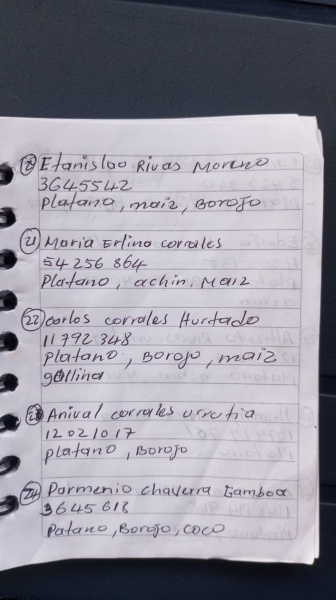 Etanislao Rivas Moreno
3645542
Platano, maiz, Borojo
21 Maria Erlina corrales
54 256 864
Platano, achin, Maiz
22 carlos corrales Hurtado
11792 348
platano, Borojo, maiz
gallina
Anival corrales urrutia
12021017
platano, Borojo
24 Parmenio chaverra Gamboa
3645618
Patano, Borojo, coco